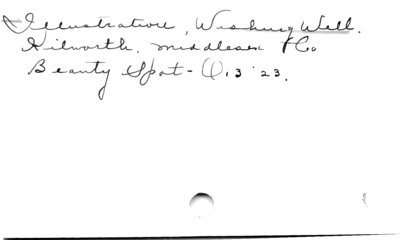 Illustration, Wishing Well.
Kilworth. Middlesex Co
Beauty Spot - Q. 3 '23.